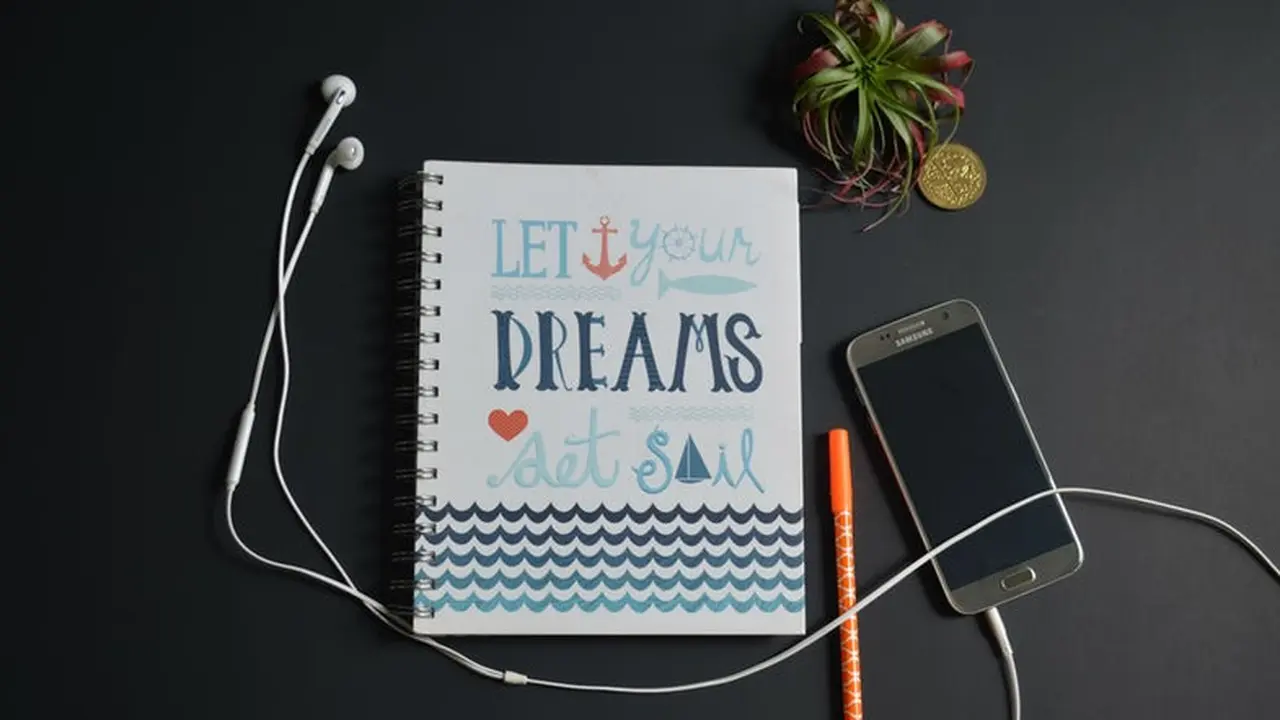 LET your
DREAMS
set sail
SAMSUNG